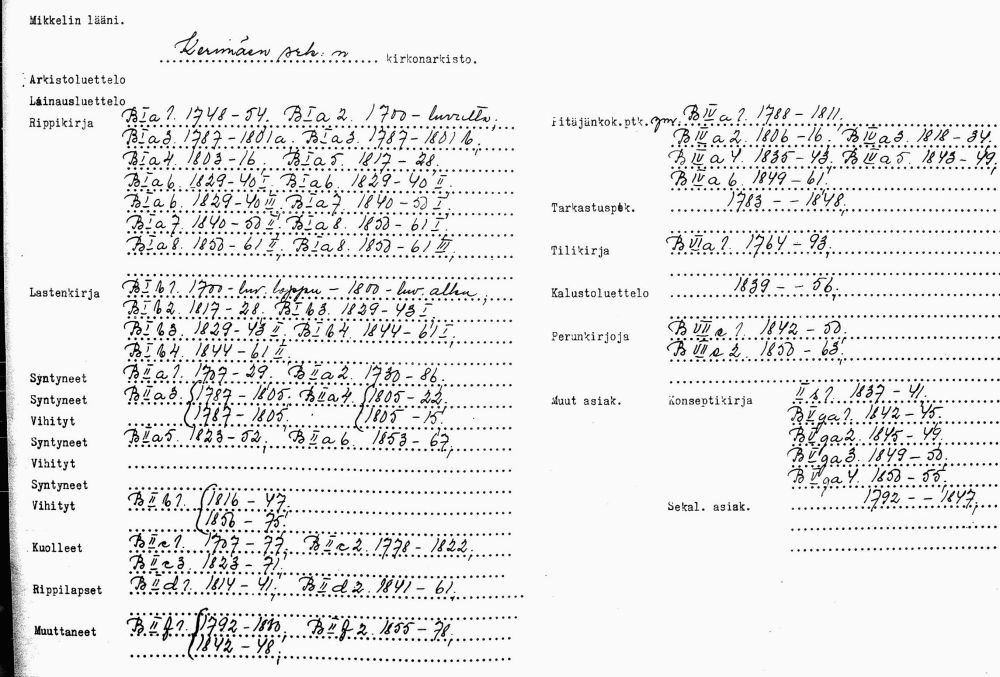 Mikkelin lääni.
Kerimäen srk:n kirkonarkisto.
Arkistoluettelo
Lainausluettelo
Rippikirja B I a 1. 1748-54. B I a 2. 1700-luvulta;
B I a 3. 1787-1801 a. B I a 3. 1787-1801 b;
B I a 4. 1803-16. B I a 5. 1817-28.
B I a 6. 1829-40 I. B I a 6. 1829-40 II.
B I a 6. 1829-40 III. B I a 7. 1840-50 I;
B I a 7. 1840-50 II; B I a 8. 1850-61 I;
B I a 8. 1850-61 II; B I a 8. 1850-61 III;
Lastenkirja B I b 1. 1700-luv. loppu - 1800-luv. alku;
B I b 2. 1817-28. B I b 3. 1829-43 I.
B I b 3. 1829-43 II. B I b 4. 1844-61 I;
B I b 4. 1844-61 II.
Syntyneet B II a 1. 1707-29. B II a 2. 1730-86.
Syntyneet B II a 3. {1787-1805. B II a 4. {1805-22.
Vihityt {1787-1805. {1805-15.
Syntyneet B II a 5. 1823-52, B II a 6. 1853-67,
Vihityt
Syntyneet
Vihityt B II b 1. {1816-47.
{1856-75.
Kuolleet B II c 1. 1707-77, B II c 2. 1778-1822,
B II c 3. 1823-71,
Rippilapset B II d 1. 1814-41; B II d 2. 1841-61.
Muuttaneet B II f 1. {1792-1880, B II f 2. 1855-78,
{1842-48;
Pitäjänkok.ptk. ym. B IV a 1. 1788-1811.
B IV a 2. 1806-16. B IV a 3. 1818-34.
B IV a 4. 1835-43. B IV a 5. 1843-49,
B IV a 6. 1849-61.
Tarkastuspök. 1783--1848.
Tilikirja B VI a 1. 1764-93.
Kalustoluettelo 1839--56.
Perunkirjoja B VII c 1. 1842-50.
B VII c 2. 1850-63.
Muut asiak. Konseptikirja II s 1. 1837-41.
B V ga 1. 1842-45.
B V ga 2. 1845-49.
B V ga 3. 1849-50.
B V ga 4. 1850-55.
Sekal. asiak. 1792--1847.